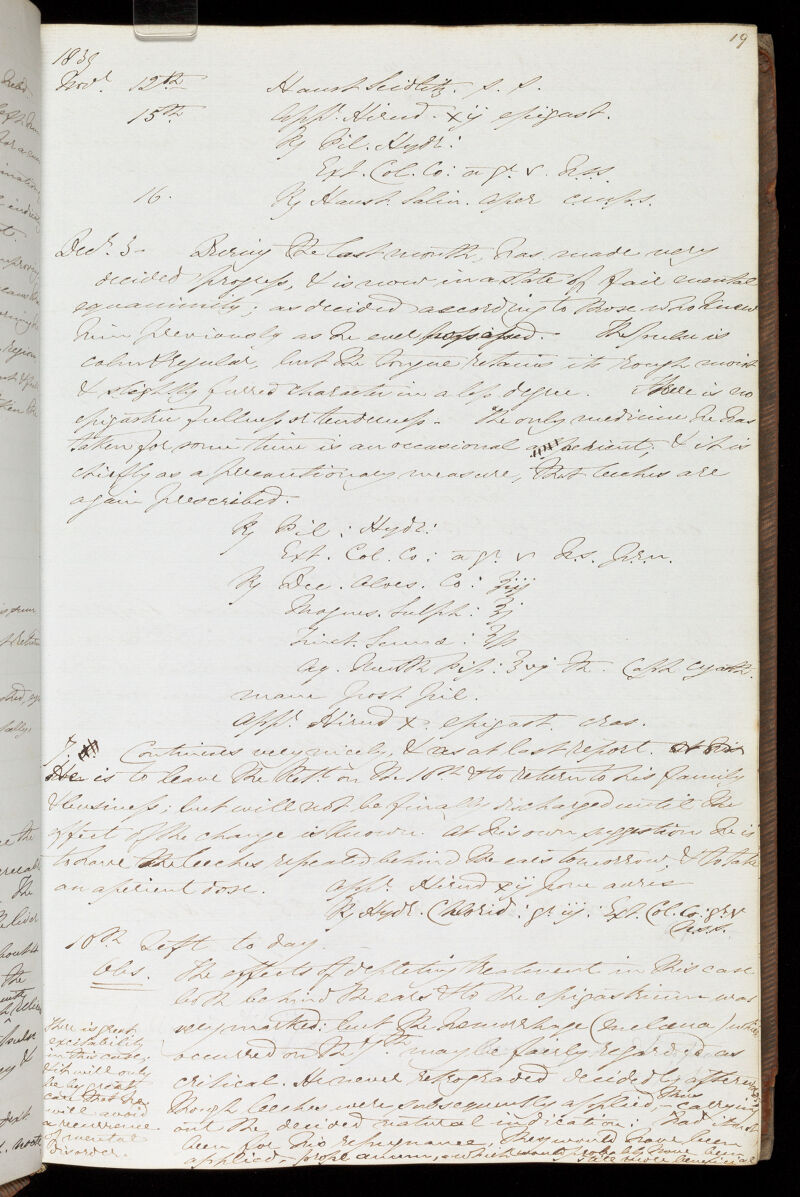 19
1839
Novr. 12th Haust. Seidlitz. s. s.
15th Appr. Hirud. xij epigast.
℞ Pil. Hydr:
Ext. Col. Co: a gr. v. h.s.s.
16. ℞ Haust. Salin. aper c.m.s.
Decr. 3. During the last month, has made very
decided progress, & is now in a state of fair mental
equanimity; as decided according to those who knew
him previously as he ever possessed. The pulse is
calm & regular, but the tongue retains its rough moist
& slightly furred character in a less degree. There is no
epigastric fullness or tenderness. The only medicine he has
taken for some time is an occasional aperient, & it is
chiefly as a precautionary measure, that leeches are
again prescribed.
℞ Pil: Hydr:
Ext. Col. Co: a gr. v h.s. p.r.n.
℞ Dec. Aloes. Co: ℥iij
Magnes. Sulph: ℥j
Tinct. Sennæ: ℥ss
Aq. Menth Pip: ℥vj M. Capt. cyath.
mane post pil.
Appr. Hirud x. epigast. cras.
7. Continues very nicely, & as at last report.
He is to leave the Rett. on the 10th & to return to his family
& business; but will not be finally discharged until the
effect of the change is known. At his own suggestion he is
to have the leeches repeated behind the ears tomorrow, & to take
an aperient dose. Appr. Hirud xij pone aures
℞ Hydr. Chlorid: gr iij. Ext. Col. Co: gr. v
h.s.s.
10th Left to day.
Obs. The effects of depleting treatment in this case
both behind the ears & to the epigastrium was
very marked: but the hemorrhage (melæna) which
occurred on the 7th may be fairly regarded as
critical. He never retrograded decidedly afterwards
though leeches were subsequently applied, thus carrying
out the decided natural indication: Had it not
been for his repugnance, they would have been
applied, prope anum, which would probably have been
still more beneficial
There is great
excitability
in this case,
& it will only
be by great
care that he
will avoid
a recurrence
of mental
disorder.